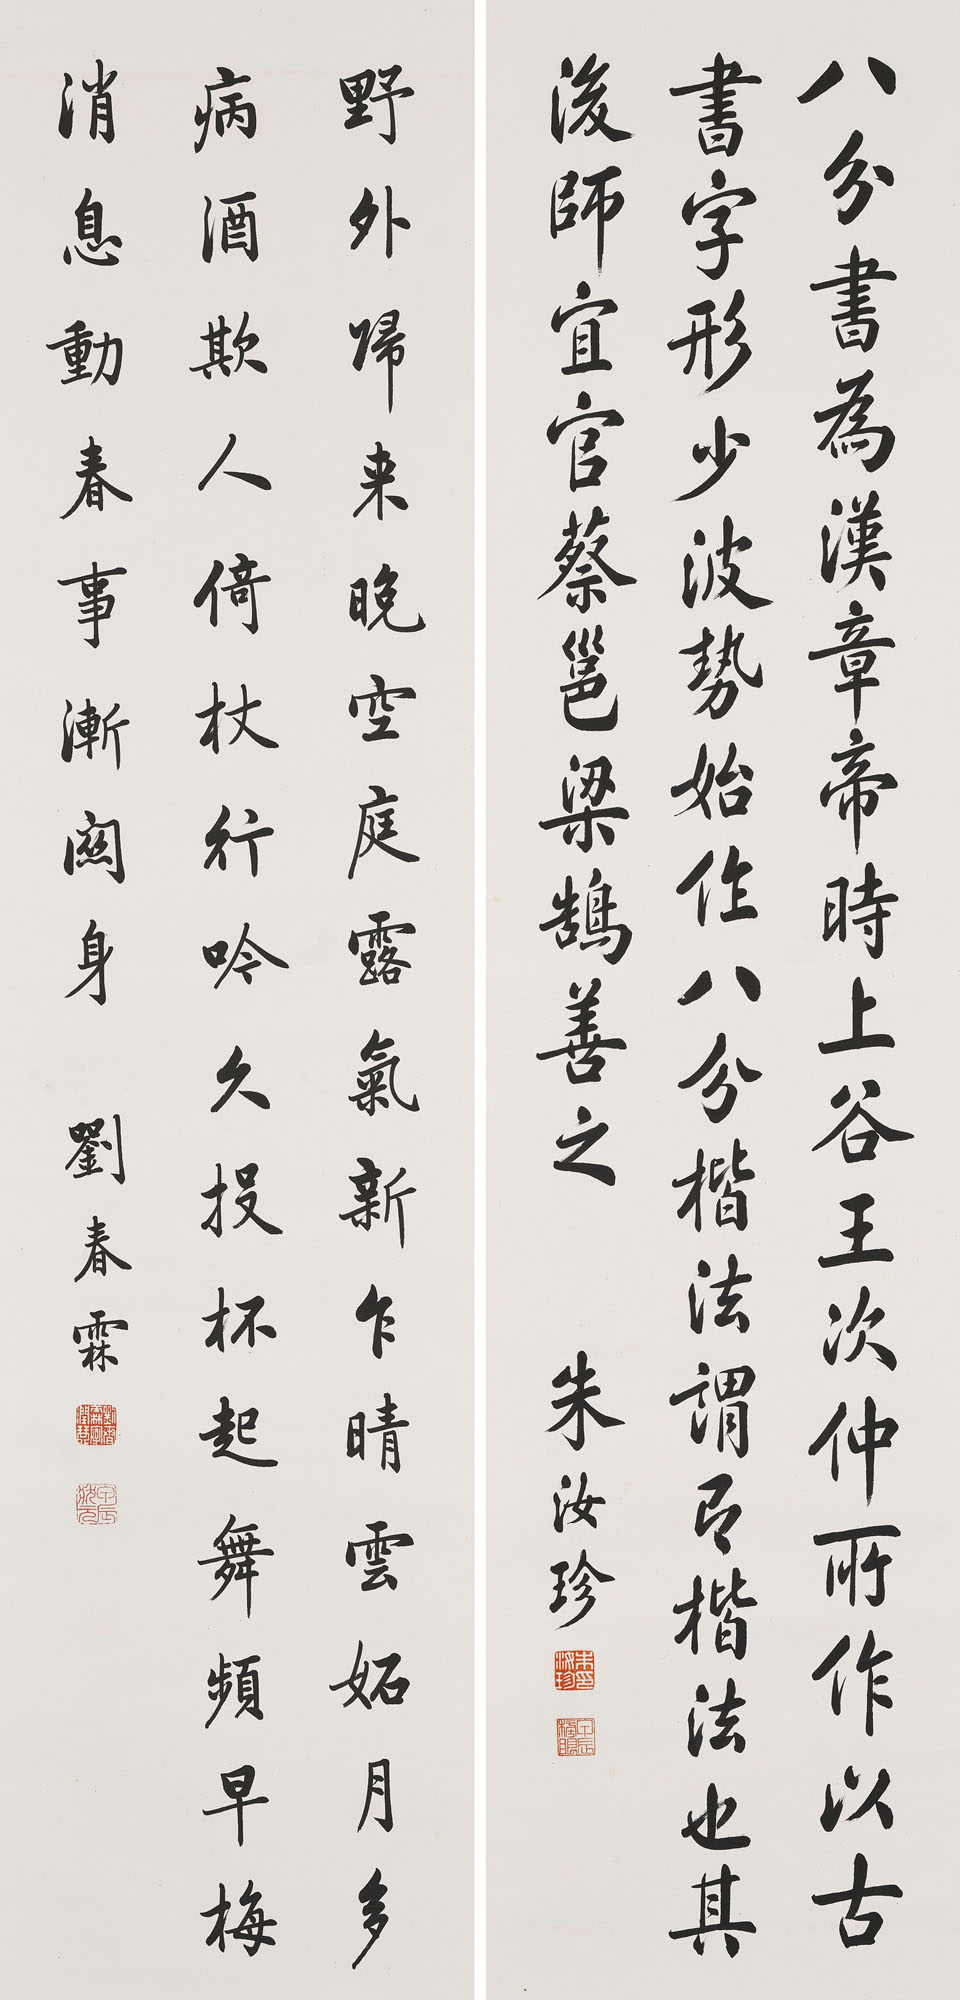 八分書為漢章帝時上谷王次仲所作以古
書字形少波勢始作八分楷法謂之楷法也其
後師宜官蔡邕梁鵠善之
朱汝珍
朱汝珍印
甲辰榜眼
野外歸来晚空庭露氣新乍晴雲妬月多
病酒欺人倚杖行吟久投杯起舞頻早梅
消息動春事漸關身
劉春霖
甲辰狀元